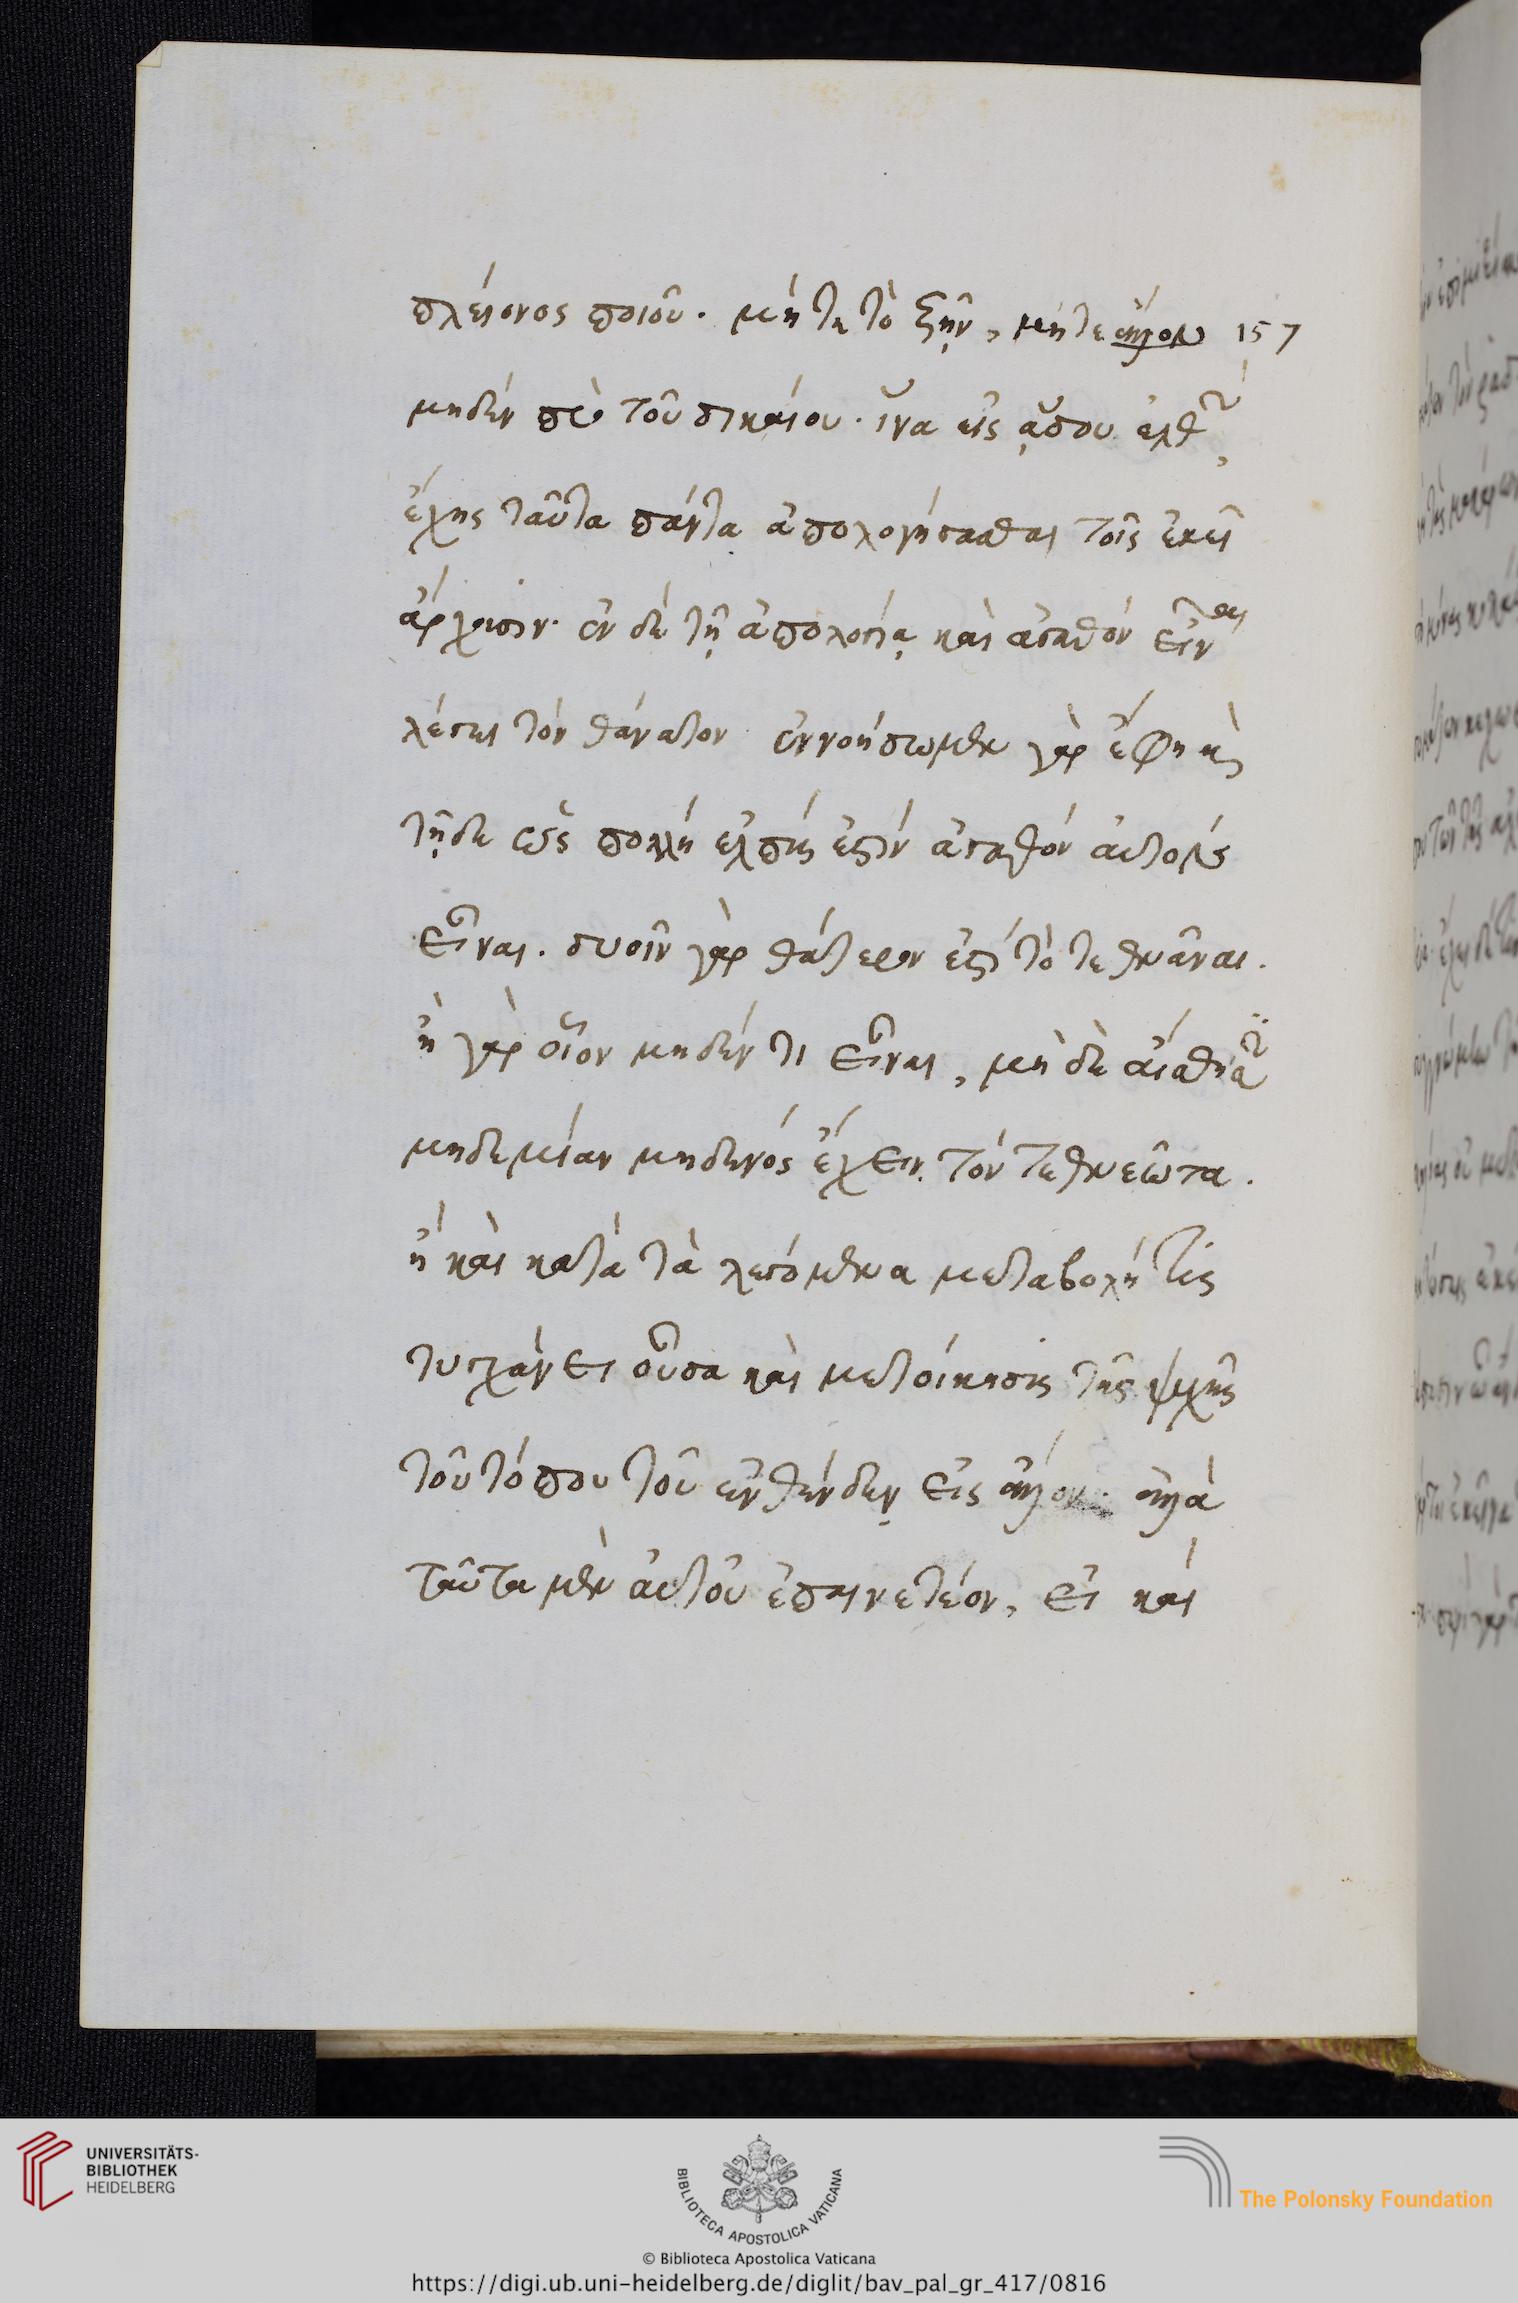 πλείονος ποιοῦ· μήτε τὸ ζῆν, μήτε ἄλλον 157
μηδὲν πρὸ τοῦ δικαίου· ἵνα εἰς ᾅδου ἐλθὼν
ἔχης ταῦτα πάντα ἀπολογήσασθαι τοῖς ἐκεῖ
ἄρχουσιν· ἐν δὲ τῇ ἀπολογίᾳ καὶ ἀγαθόν εἶναι
λέγει τὸν θάνατον ἐννοήσωμεν γὰρ ἔφη κὶ
τῇδε ὡς πολλὴ ἐλπίς ἐστίν ἀγαθόν ἀυτοὺς
εἶναι. δυοῖν γὰρ θάτερον ἐστὶ τὸ τεθνᾶναι.
ἢ γὰρ οἷον μηδέν τι εἶναι, μὴ δὲ αἴσθησιν
μηδεμίαν μηδενός ἔχειν τὸν τεθνεῶτα.
ἢ καὶ κατὰ τὰ λεγόμενα μεταβολή τίς
τυγχάνει οὖσα καὶ μετοίκησις τῆς ψυχῆς
τοῦ τόπου τοῦ ἐνθένδεν εἰς ἄλλον· ἀλλὰ
ταῦτα μὲν ἀυτοῦ ἐπαινετέον, εἰ καὶ
UNIVERSITÄTS-
BIBLIOTHEK
HEIDELBERG
BIBLIOTECA APOSTOLICA VATICANA
The Polonsky Foundation
© Biblioteca Apostolica Vaticana
https://digi.ub.uni-heidelberg.de/diglit/bav_pal_gr_417/0816